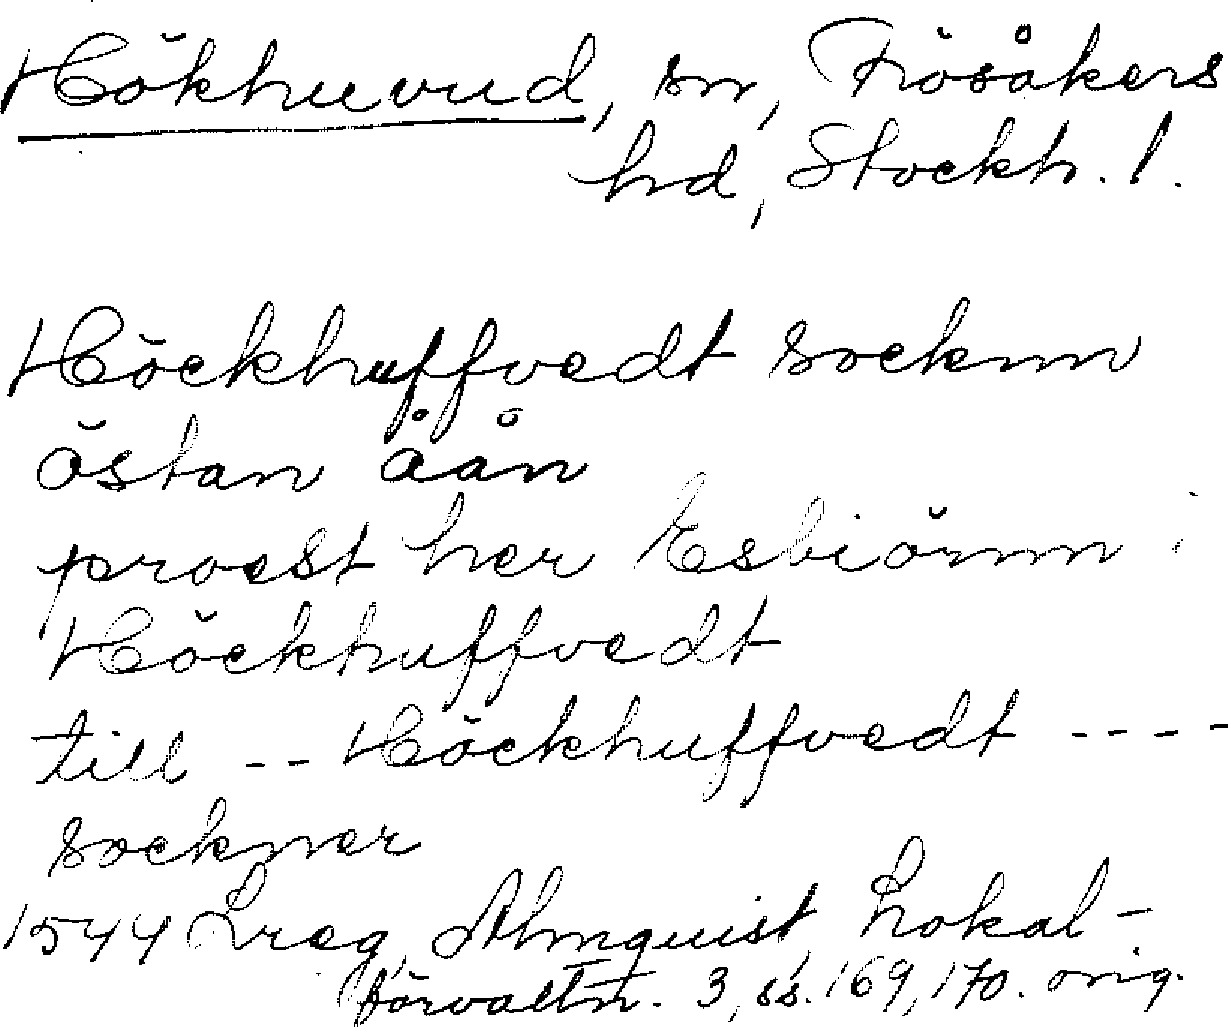 Hökhuvud, sn, Frösåkers
hd, Stockh. l.
Höckhuffvedt socknn
östan åån
proest her Esbiörnn i
Höckhuffvedt
till -- Höckhuffvedt ----
sockner
1544 Lreg, Almquist, Lokal-
förvaltn. 3, ss. 169, 170. orig.